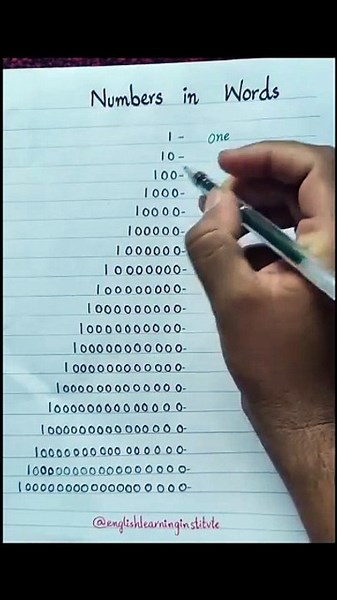 Numbers in Words
1 - one
10 -
100-
1000-
10000-
100000-
1000000-
10000000-
100000000-
1000000000-
10000000000-
100000000000-
1000000000000-
10000000000000-
100000000000000-
1000000000000000-
10000000000000000-
100000000000000000-
1000000000000000000-
@englishlearninginstitute